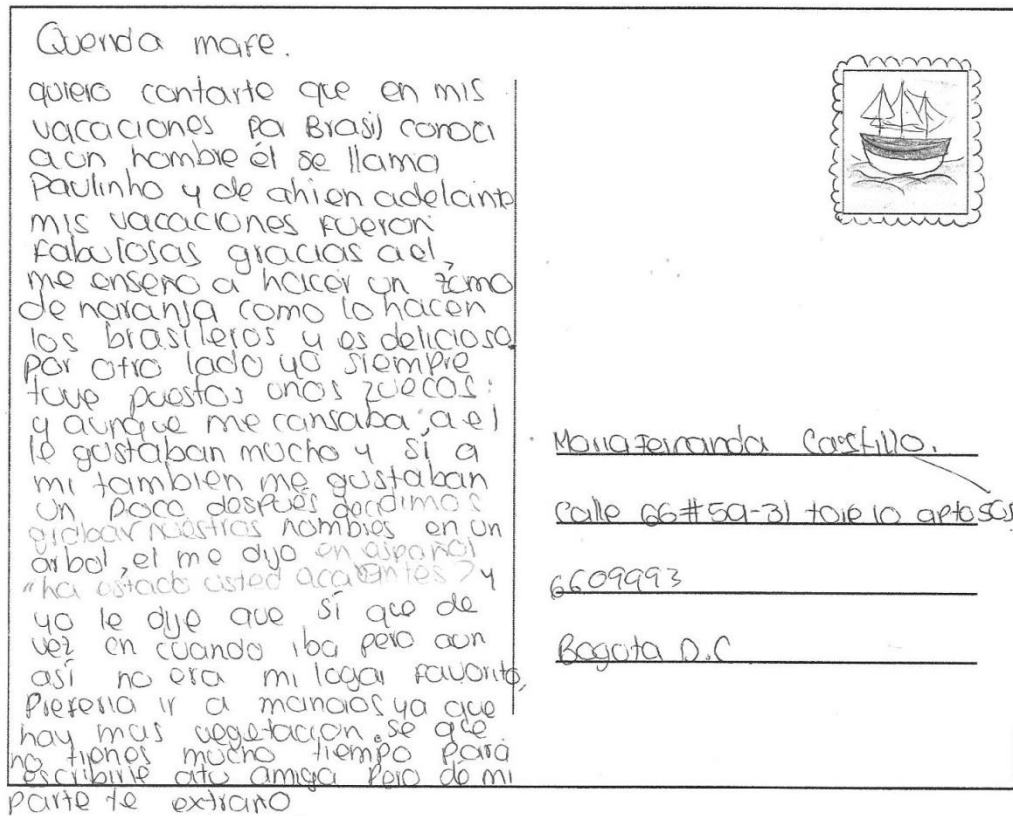 Querida mafe.
quiero contarte que en mis
vacaciones pa Brasil conoci
aun hombre él se llama
Paulinho y de ahien adelante
mis vacaciones fueron
fabulosas gracias ael,
me enseño a hacer un zumo
de naranja como lo hacen
los brasileros y es delicioso.
por otro lado yo siempre
tuve puestos unos zuecos;
y aunque me cansaba, a el
le gustaban mucho y sí a
mi tambien me gustaban
un poco después decidimos
grabar nuestros nombres en un
arbol, el me dijo en español
"ha estado usted aca antes? y
yo le dije que sí que de
vez en cuando iba pero aun
así no era mi lugar favorito,
Preferia ir a manaos ya que
hay mas vegetacion. se que
no tienes mucho tiempo para
escribirle atu amiga pero de mi
parte te extraño
Maria Fernanda Castillo.
Calle 66#59-31 torre 10 apto 505
6609993
Bogota D.C